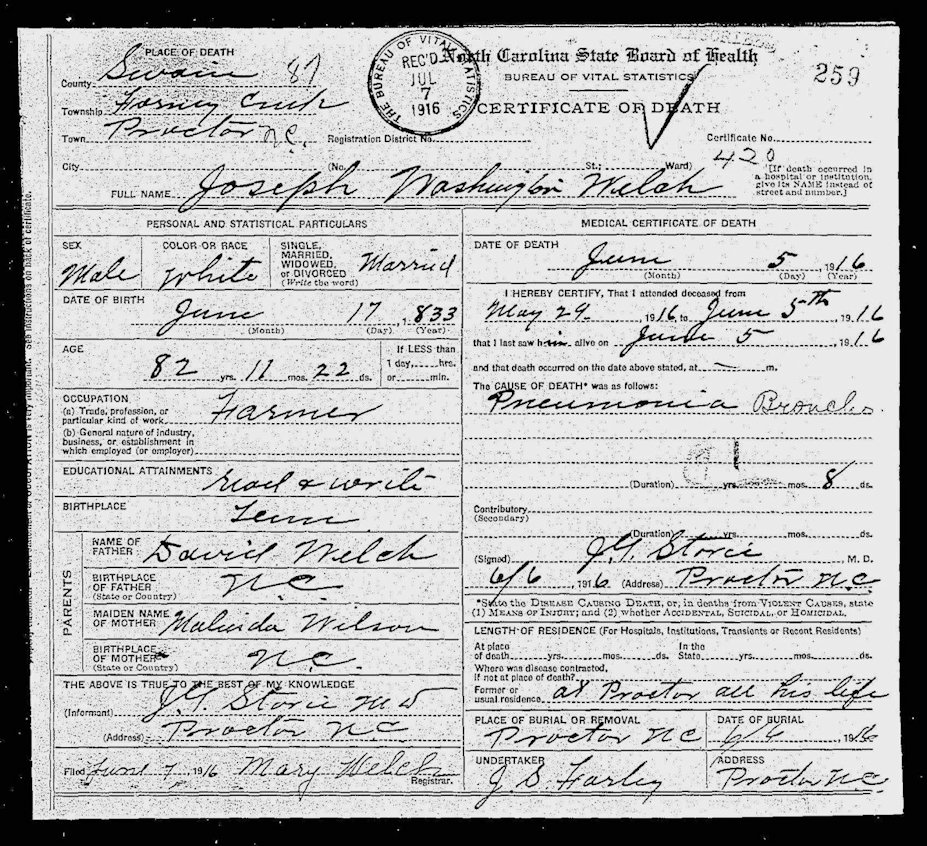 PLACE OF DEATH
County Swain 87
Township Forney Creek
Town Proctor N.C.
THE BUREAU OF VITAL STATISTICS
REC'D
JUL
7
1916
North Carolina State Board of Health
BUREAU OF VITAL STATISTICS
CERTIFICATE OF DEATH
259
Registration District No.
Certificate No.
420
City (No. St.; Ward)
[If death occurred in
a hospital or institution,
give its NAME instead of
street and number.]
FULL NAME Joseph Washington Welch
PERSONAL AND STATISTICAL PARTICULARS
SEX
Male
COLOR OR RACE
White
SINGLE,
MARRIED,
WIDOWED,
or DIVORCED
(Write the word)
Married
DATE OF BIRTH
June 17, 833
(Month) (Day) (Year)
AGE
82 yrs. 11 mos. 22 ds.
If LESS than
1 day, hrs.
or min.
OCCUPATION
(a) Trade, profession, or
particular kind of work Farmer
(b) General nature of industry,
business, or establishment in
which employed (or employer)
EDUCATIONAL ATTAINMENTS
Read & write
BIRTHPLACE
Tenn
PARENTS
NAME OF
FATHER David Welch
BIRTHPLACE
OF FATHER
(State or Country) N.C.
MAIDEN NAME
OF MOTHER Malinda Wilson
BIRTHPLACE
OF MOTHER
(State or Country) N.C.
THE ABOVE IS TRUE TO THE BEST OF MY KNOWLEDGE
(Informant) J.G. Storie MD
(Address) Proctor NC
Filed June 7, 1916 Mary Welch
Registrar.
MEDICAL CERTIFICATE OF DEATH
DATE OF DEATH
June 5, 1916
(Month) (Day) (Year)
I HEREBY CERTIFY, That I attended deceased from
May 29, 1916, to June 5th, 1916
that I last saw him alive on June 5, 1916
and that death occurred on the date above stated, at m.
The CAUSE OF DEATH* was as follows:
Pneumonia Broncho.
(Duration) yrs. mos. 8 ds.
Contributory
(Secondary)
(Duration) yrs. mos. ds.
(Signed) J.G. Storie M. D.
6/6, 1916 (Address) Proctor N.C.
*State the DISEASE CAUSING DEATH, or, in deaths from VIOLENT CAUSES, state
(1) MEANS OF INJURY; and (2) whether ACCIDENTAL, SUICIDAL, or HOMICIDAL.
LENGTH OF RESIDENCE (For Hospitals, Institutions, Transients or Recent Residents)
At place In the
of death yrs. mos. ds. State yrs. mos. ds.
Where was disease contracted,
if not at place of death?
Former or
usual residence at Proctor all his life
PLACE OF BURIAL OR REMOVAL
Proctor NC
DATE OF BURIAL
6/6, 1916
UNDERTAKER
J S Farley
ADDRESS
Proctor N.C.